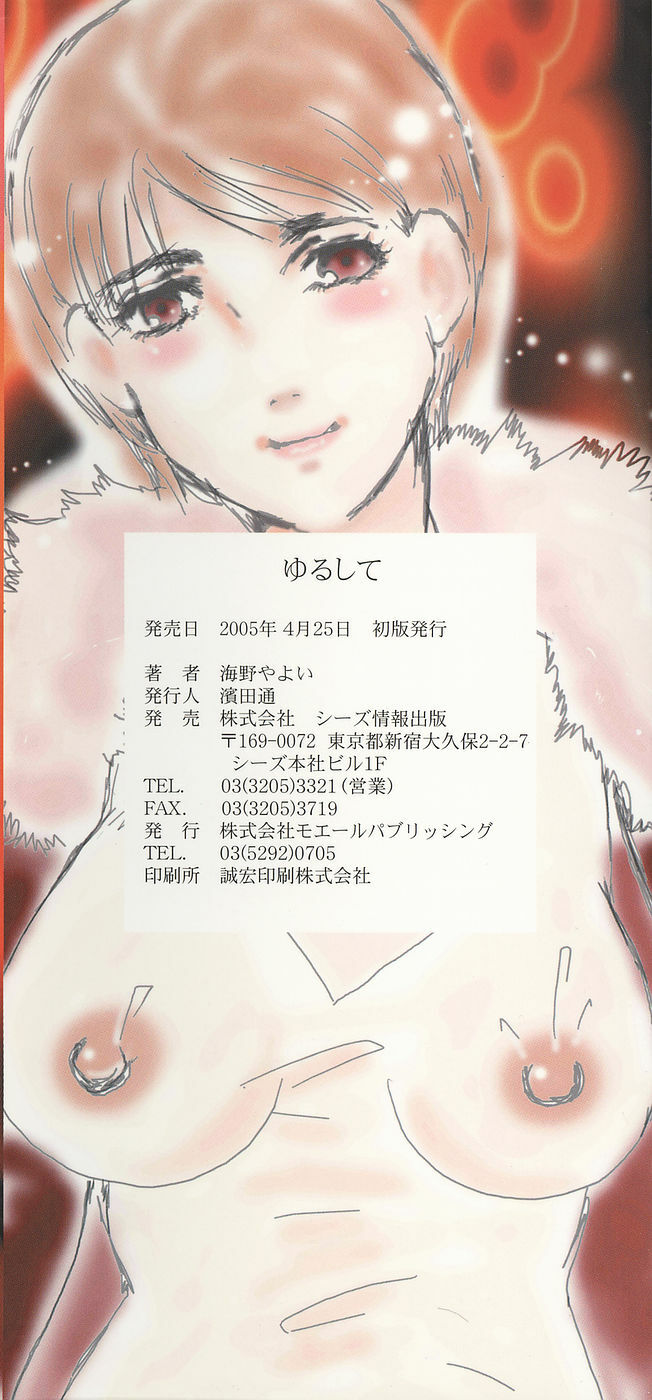 ゆるして
発売日　2005年 4月25日　初版発行
著　者　海野やよい
発行人　濱田通
発　売　株式会社　シーズ情報出版
〒169-0072 東京都新宿大久保2-2-7
シーズ本社ビル1F
TEL.　03(3205)3321(営業)
FAX.　03(3205)3719
発　行　株式会社モエールパブリッシング
TEL.　03(5292)0705
印刷所　誠宏印刷株式会社